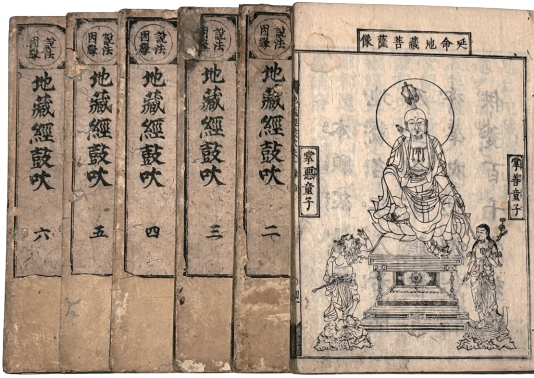 延命地藏菩薩像
掌善童子
掌惡童子
說法
因緣
地藏經鼓吹
二
說法
因緣
地藏經鼓吹
三
說法
因緣
地藏經鼓吹
四
說法
因緣
地藏經鼓吹
五
說法
因緣
地藏經鼓吹
六